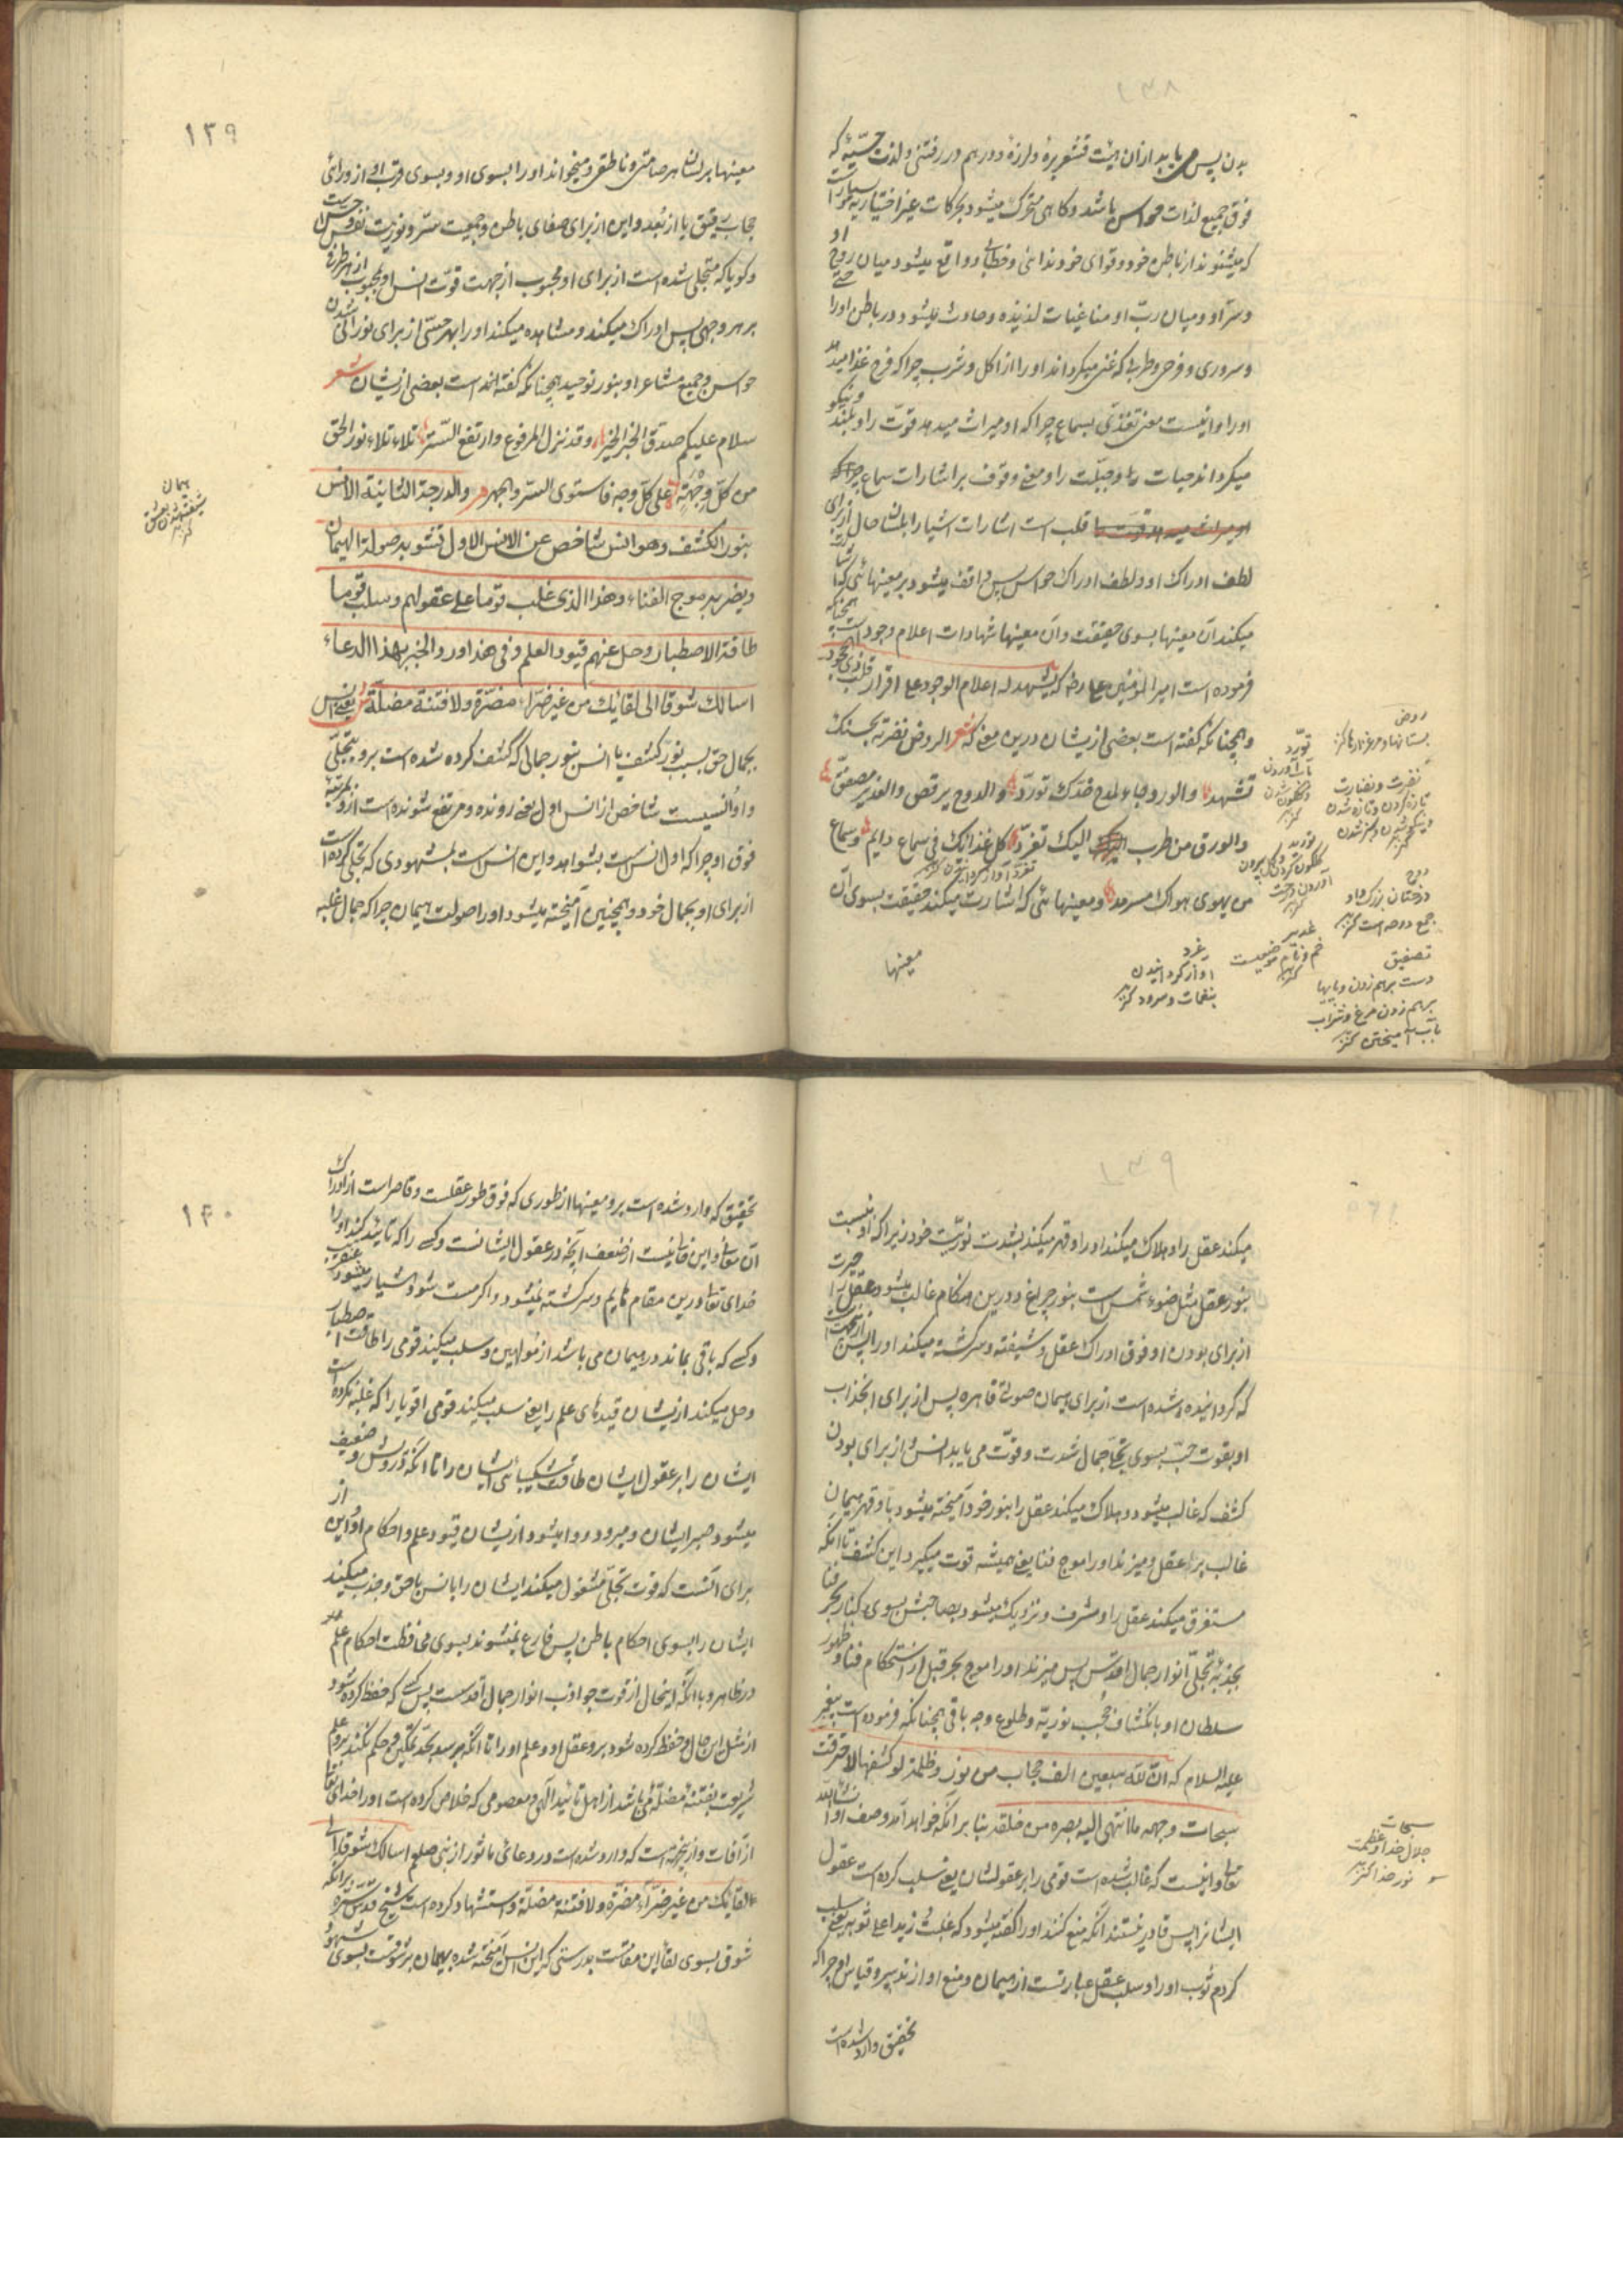 ۱۳۸
بدن پس می یابد ازان هیئت قشعریره و لرزه و در هم در رفتنی و لذت حسیّه که
فوق جمیع لذات حواس باشد و کاهی متحرک میشود بحرکات غیر اختیاریه
که میشنوند از باطن خود و قوای خود ندائی و خطابی و واقع میشود میان روح او
و سرّ او و میان ربّ او مناغیات لذیذه و حادث میشود در باطن او را
و سروری و فرحی و طربی که غنی میکرداند او را از اکل و شرب چرا که فرح غذا میدهد
او را و نیست معنی تغذّی بسماع چرا که او میراث میدهد قوّت را و بلند
میکرداند حیات را و جبلّت را و معنی وقوف بر اشارات سماع چراکه
قلب است اشارات اشیا را بلسان حال از برای
لطف ادراک او و لطف ادراک حواس پس واقف میشود بر معنیهائی که
میکند آن معنیها بسوی حقیقت و آن معنیها شهادات اعلام وجود است همچنانکه
فرموده است امیر المومنین علی رض که یشهد له اعلام الوجود علی اقرار قلب ذی الجحود
و همچنانکه گفته است بعضی ازیشان درین معنی که شعر الروض نضرته بحسنک
تشهد والورد جاء لمدح خدّک تورّد والدوح یرقص والغدیر مصفق
والورق من طرب الیک تغرّد کل غذائک فی سماع دایم و سماع
من یهوی هواک مسرمد و معنیهائی که اشارت میکند حقیقت بسوی آن
معنیها
روض
بستانها و مرغزارها کنز
نضرت و نضارت
تازه کردن و تازه شدن
دوح
درختان بزرک
جمع دوحه است کنز
تصفیق
دست برهم زدن و بالها
برهم زدن مرغ و شراب
بآب آمیختن کنز
غدیر
غرد
آواز کردانیدن
بنغمات و سرود کنز
۱۳۹
معنیها بر لسان هر صامتی و ناطقی و میخواند او را بسوی او و بسوی قرب او از ورای
حجاب رقیق یا از بُعد و این از برای صفای باطن و جمعیت سرّ و نوریت نفوس است
و کویا که متجلی شده است از برای او محبوب از جهت قوّت انس او بمحبوب از هر طرفی
بر هر وجهی پس ادراک میکند و مشاهده میکند او را بهر حسّی از برای نورانی شدن
حواس و جمیع مشاعر او بنور توحید همچنانکه گفته است بعضی ازیشان شعر
سلام علیکم صدّق الخبر الخبر و قد نزل المرفوع و ارتفع السّتر تلاءلاء نور الحق
من کلّ وجهة علی کلّ وجه فاستوی السرّ والجهر والدرجة الثانیة الانس
بنور الکشف وهو انس شاخص عن الانس الاول تشوبه صولة الهیمان
ویضربه موج الفناء وهذا الذی غلب قوما علی عقولهم وسلب قوما
طاقة الاصطبار وحل عنهم قیود العلم وفی هذا ورد الخبر بهذا الدعاء
اسالک شوقا الی لقائک من غیر ضرّاء مضرّة ولا فتنة مضلّة یعنی انس
بجمال حق بسبب نور کشف یا انس بنور جمالی که کشف کرده شده است برو بتجلّی
و او انسیست شاخص از انس اول یعنی رونده و مرتفع شونده است ازو بمرتبه
فوق او چرا که اول انس است بشواهد و این انس است بمشهودی که تجلی کرده است
از برای او بجمال خود و همچنین آمیخته میشود او را صولت هیمان چرا که جمال غلبه
هیمان
شیفته شدن بعشق
کنز
۱۳۹
میکند عقل را و هلاک میکند او را و قهر میکند بشدت نوریّت خود زیرا که او نسبت
بنور عقل مثل ضوء شمس است بنور چراغ و درین هنکام غالب میشود حیرت عقل را
از برای بودن او فوق ادراک عقل و شیفته و سرکشته میکند او را پس ازینجهت است
که کردانیده شده است از برای هیمان صولتی قاهره پس از برای انجذاب
او بقوت حبّ بسوی تجلی جمال شدت و قوّت می یابد انس و از برای بودن
کشف که غالب میشود و هلاک میکند عقل را بنور خود آمیخته میشود باو قهر هیمان
غالب بر عقل و میزند او را موج فنا یعنی همیشه قوت میکیرد این کشف تا آنکه
مستغرق میکند عقل را و مشرف و نزدیک میشود بصاحبش بسوی کنار بحر فنا
بجذبۀ تجلّی انوار جمال اقدس پس میزند او را موج بحر قبل از استحکام فنا و ظهور
سلطان او بانکشاف حُجب نوریّه و طلوع وجه باقی همچنانکه فرموده است پیغمبر
علیه السلام که انّ لله سبعین الف حجاب من نور و ظلمة لو کشفها لاحترقت
سبحات وجهه ما انتهی الیه بصره من خلقه بنا بر آنکه خواهد آمد وصف او انشاالله
تعالی و اینست که غالب شده است قومی را بر عقولشان یعنی سلب کرده است عقول
ایشانرا پس قادر نیستند آنکه منع کنند او را گفته میشود که غلبت زیدا علی ثوبه یعنی سلب
کردم ثوب او را و سلب عقل عبارتست از هیمان و منع او از تدبیر و قیاس او چراکه
تحقیق وارد شده است
سبحات
جلال خدا و عظمت
و نور خدا کنز
۱۴۰
تحقیق که وارد شده است برو معنیها از طوری که فوق طور عقلست و قاصر است از ادراک
آن معانی و این فانیست از ضعف آنچه در عقول ایشانست و کسی را که تایید کند او را
خدای تعالی درین مقام هایم و سرکشته نمیشود و اکر مست شود هشیار میشود عنقریب
و کسی که باقی بماند در هیمان می باشد از مولهین و سلب میکند قومی را طاقت اصطبار
و حل میکند ازیشان قیدهای علم را یعنی سلب میکند قومی اقویا را که غلبه نکرده است
ایشان را بر عقول ایشان طاقت شکیبائی ایشان را تا آنکه و ضعیف
میشود صبر ایشان و میرود و وا میشود ازیشان قیود علم و احکام او و این از
برای آنست که قوت تجلّی مشغول میکند ایشان را بانس باحق و جذب میکند
ایشان را بسوی احکام باطن پس فارغ نمیشوند بسوی محافظت احکام علم
در ظاهر و با آنکه اینحال از قوت جواذب انوار جمال اقدسست پس کسی که حفظ کرده شود
از مثل این حال و حفظ کرده شود برو عقل او و علم او را تا آنکه برسد بحدّ تمکین و حکم نکند برو علم
شریعت بفتنه مضلّه می باشد از اهل تایید الهی و معصومی که خلاص کرده است او را خدای تعالی
از آفات و ازینجهت است که وارد شده است در دعائی ماثور از نبی صلعم اسالک شوقا الی
لقائک من غیر ضرّاء مضرّة ولا فتنة مضلّة و استشهاد کرده است شیخ قدّس سرّه برآنکه
شوق بسوی لقا این مقامست بدرستی که این انس آمیخته شده بهیمان بشوقست بسوی شهود